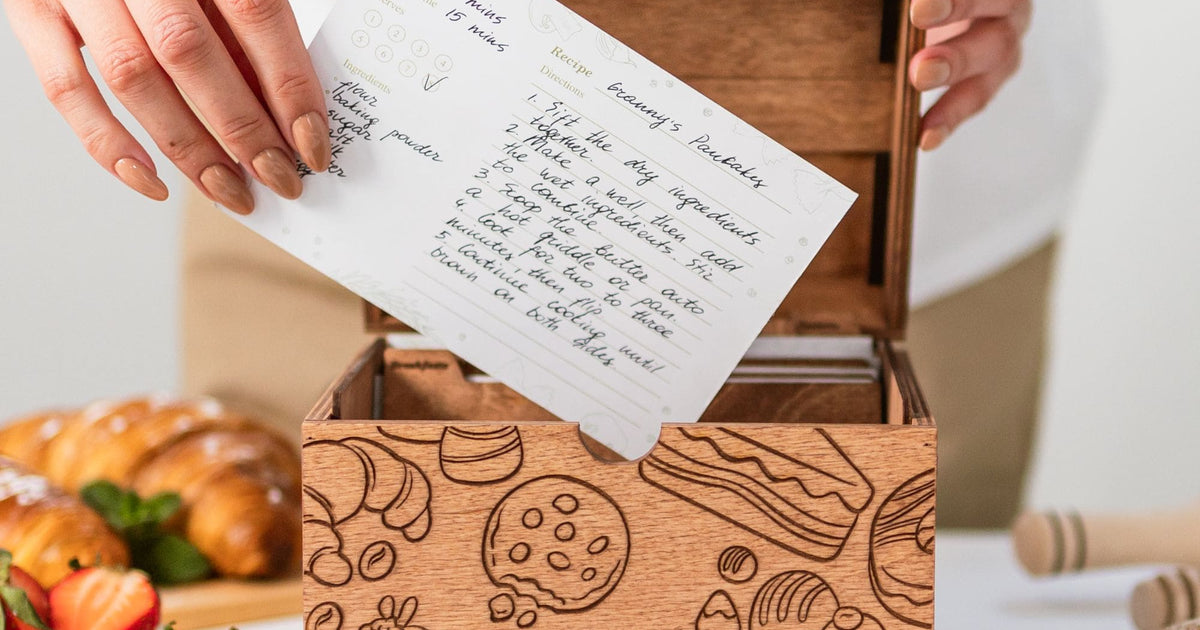 mins
15 mins
1 2 3 4
5 6 7
Ingredients
flour
baking powder
sugar
Recipe Granny's Pancakes
Directions
1. Sift the dry ingredients
together.
2. Make a well then add
the wet ingredients. Stir
to combine
3 Scoop the butter onto
a hot griddle or pan.
4. Cook for two to three
minutes, then flip
5 Continue cooking until
brown on both sides
Breakfasts